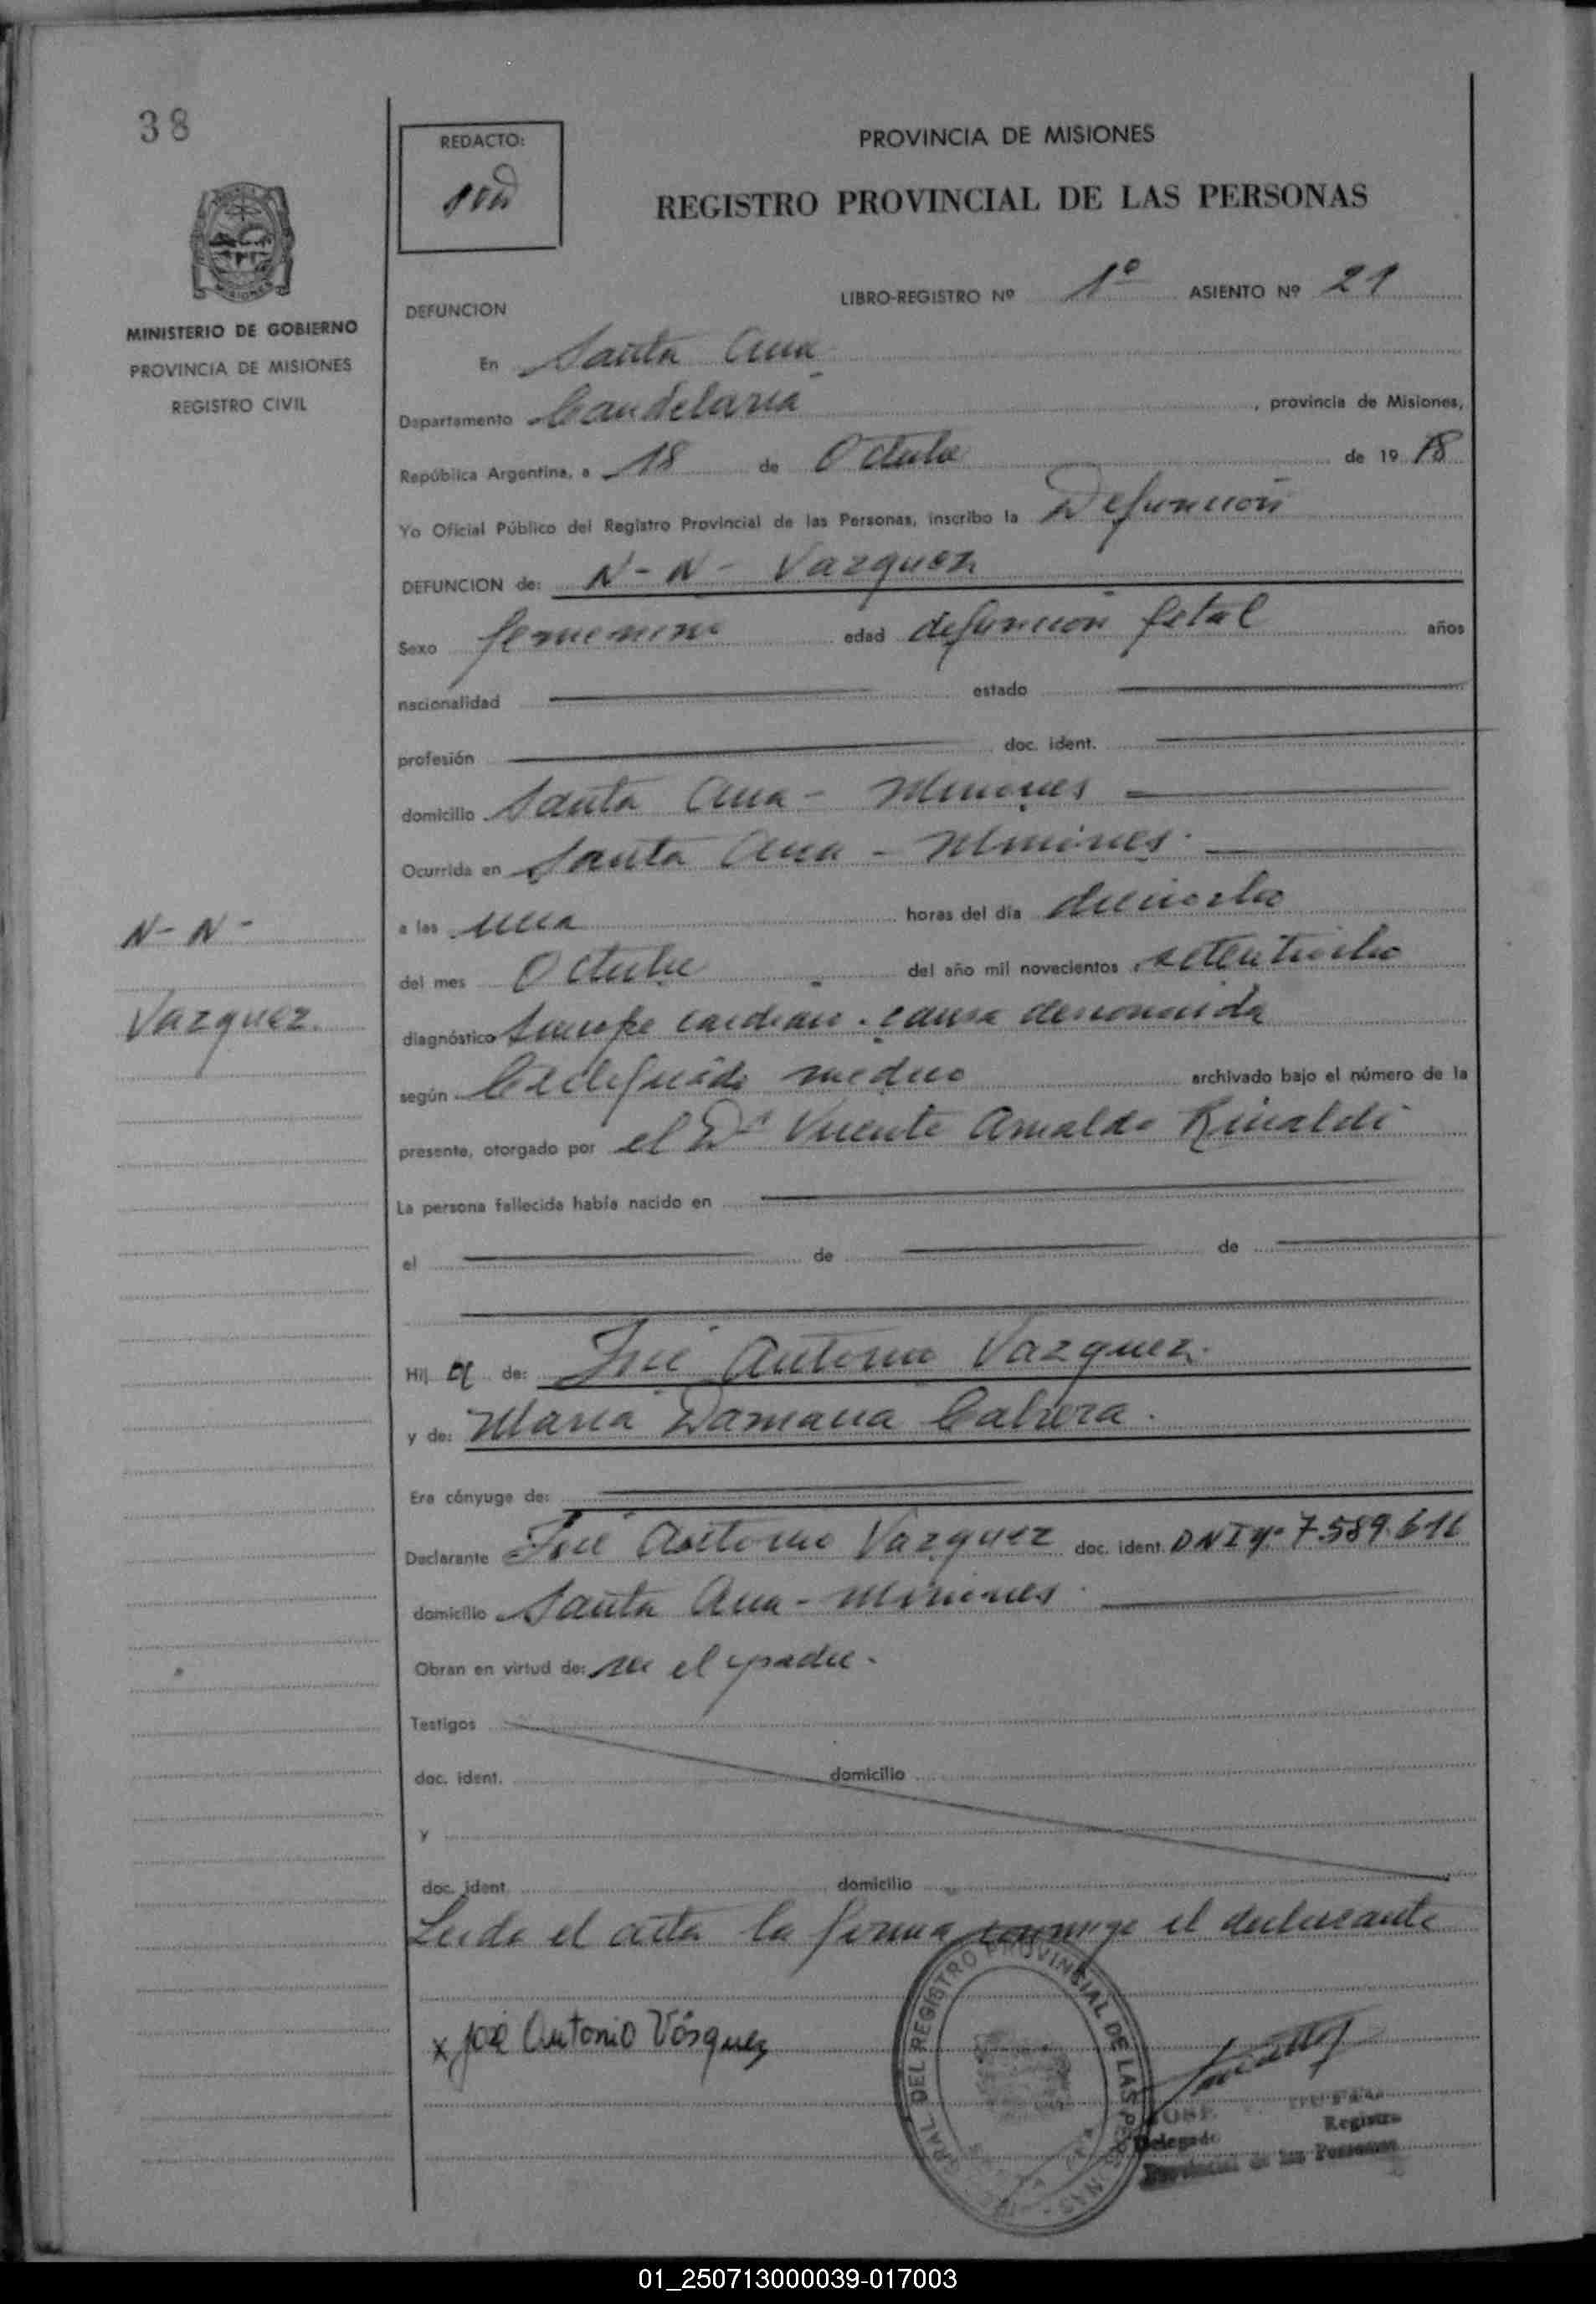 38
REDACTO:
PROVINCIA DE MISIONES
REGISTRO PROVINCIAL DE LAS PERSONAS
MISIONES
MINISTERIO DE GOBIERNO
PROVINCIA DE MISIONES
REGISTRO CIVIL
DEFUNCION
LIBRO-REGISTRO Nº 1º ASIENTO Nº 21
En Santa Ana
Departamento Candelaria, provincia de Misiones,
República Argentina, a 18 de Octubre de 19 78
Yo Oficial Público del Registro Provincial de las Personas, inscribo la Defunción
DEFUNCION de: N-N- Vazquez
Sexo femenino edad defuncion fetal años
nacionalidad estado
profesión doc. ident.
domicilio Santa Ana - Misiones
Ocurrida en Santa Ana - Misiones.
N-N-
a las una horas del día dieciocho
del mes Octubre del año mil novecientos setentiocho
Vazquez.
diagnóstico sincope cardiaco. causa desconocida
según Certificado medico archivado bajo el número de la
presente, otorgado por el Dr Vicente Arnaldo Rinaldi
La persona fallecida había nacido en
el de de
Hij a de: José Antonio Vazquez.
y de: Maria Damacia Cabrera.
Era cónyuge de:
Declarante José Antonio Vazquez doc. ident. DNI Nº 7.589.616
domicilio Santa Ana - Misiones.
Obran en virtud de: ser el padre.
Testigos
doc. ident. domicilio
y
doc. ident. domicilio
Leida el acta la firma conmigo el declarante
x José Antonio Vásquez
GRAL. DEL REGISTRO PROVINCIAL DE LAS PERSONAS
JOSE
Delegado Registro
Provincial de las Personas
01_250713000039-017003